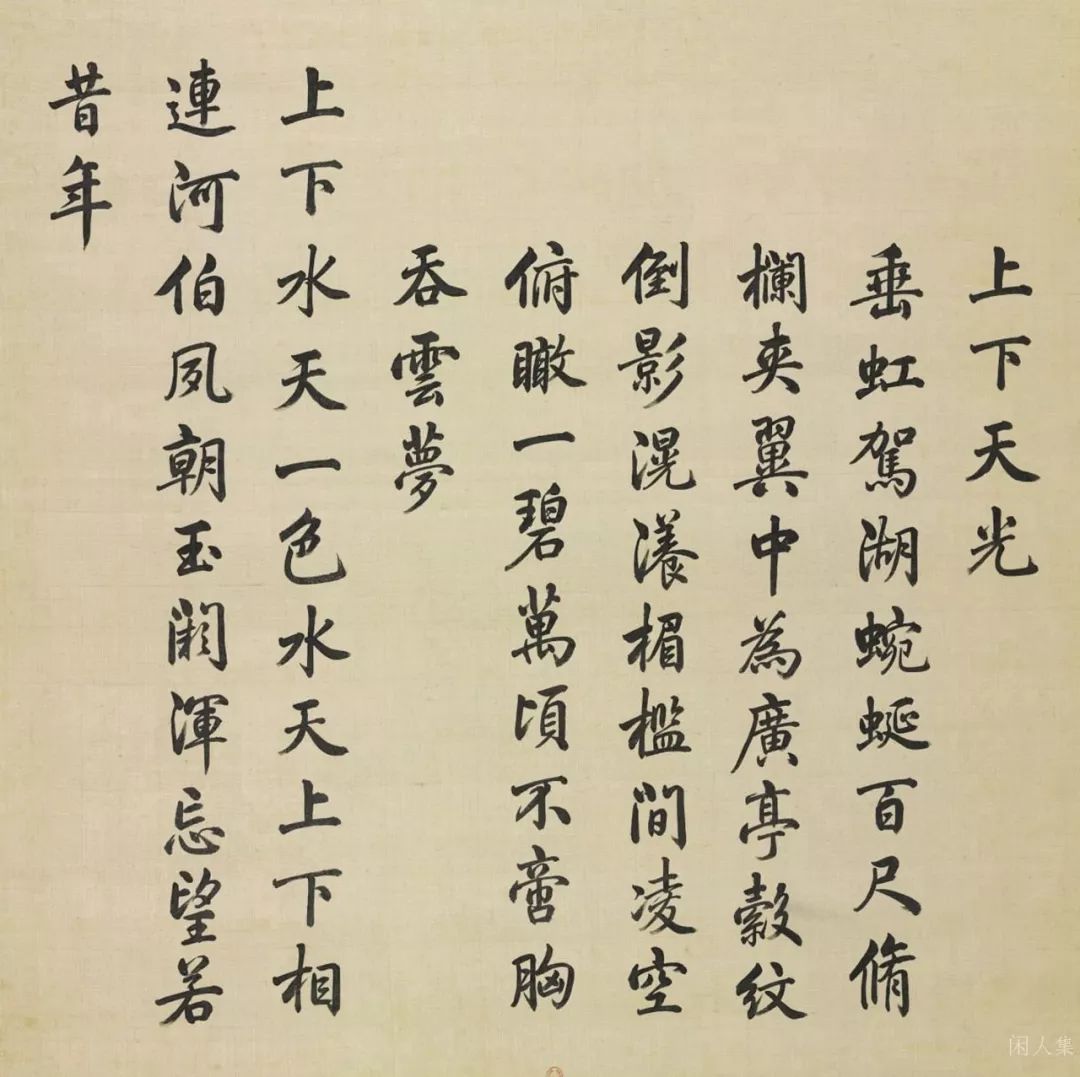 上下天光
垂虹駕湖蜿蜒百尺脩
欄夾翼中為廣亭縠紋
倒影滉瀁楣檻間凌空
俯瞰一碧萬頃不啻胸
吞雲夢
上下水天一色水天上下相
連河伯夙朝玉闕渾忘望若
昔年
闲人集